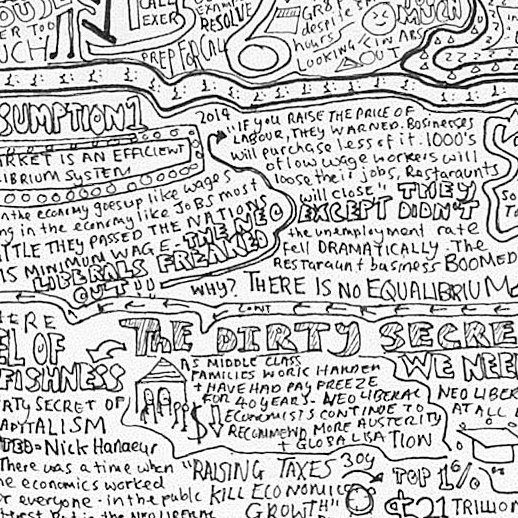 CALL
EXER
RESOLVE
PREP FOR CALL
GR8
despite
hours
LOOKING
OUT
MUCH
IN ABS
ER TOO
UCH
SUMPTION 1
ARKET IS AN EFFICIENT
LIBRIUM SYSTEM
in the economy goes up like wages
ng in the economy like JOBS most
TTLE THEY PASSED THE NATIONS
IS MINIMUM WAGE - THE NEO
LIBERALS FREAKED
OUT!!
2014
"IF YOU RAISE THE PRICE OF
LABOUR, THEY WARNED. Businesses
will purchase less of it. 1000's
of low wage workers will
loose their jobs, Restaraunts
will close" THEY
EXCEPT DIDN'T
the unemployment rate
fell DRAMATICALLY. The
Restaraunt business BOOMED
WHY? THERE IS NO EQUALIBRIUM
CONT
ERE
EL OF
FISHNESS
RTY SECRET OF
APITALISM
TED - Nick Hanaeur
There was a time when
he economics worked
or everyone - in the public
THE DIRTY SECRE
AS MIDDLE CLASS
FAMILIES WORK HARDER
+ HAVE HAD PAY FREEZE
FOR 40 YEARS - NEO LIBERAL
$ Economists CONTINUE TO
RECOMMEND MORE AUSTERITY
+ GLOBALISATION
WE NEE
NEO LIBER
AT ALL
"RAISING TAXES
KILL ECONOMIC
GROWTH"
30y
TOP 1%
$21 TRILLION